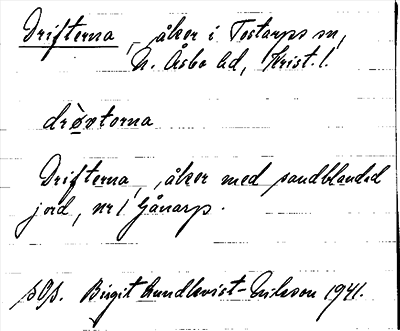 Drifterna, åker i Tostarps sn,
N. Åsbo hd, Krist. l.
drøvtorna
Drifterna, åker med sandblandad
jord, nr 1 Gånarp.
Birgit Rundkvist-Nilsson 1941.